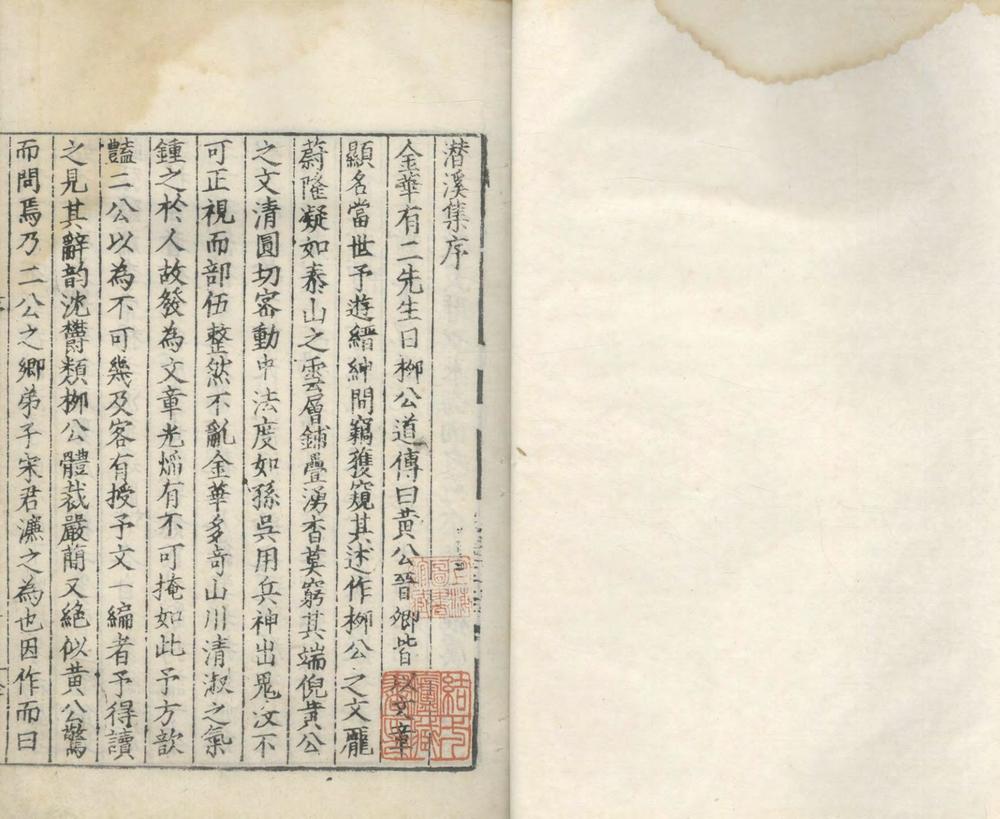 潛溪集序
金華有二先生曰栁公道傳曰黄公晉卿皆以文章
顯名當世予遊縉紳間竊獲窺其述作栁公之文龎
蔚隆凝如泰山之雲層鋪疊湧杳莫窮其端倪黄公
之文清圓切宻動中法度如孫吳用兵神出鬼没不
可正視而部伍整然不亂金華多竒山川清淑之氣
鍾之於人故發為文章光熖有不可掩如此予方歆
豔二公以為不可幾及客有授予文一編者予得讀
之見其辭韵沈欝類栁公體裁嚴蕳又絶似黄公驚
而問焉乃二公之鄉弟子宋君濂之為也因作而曰